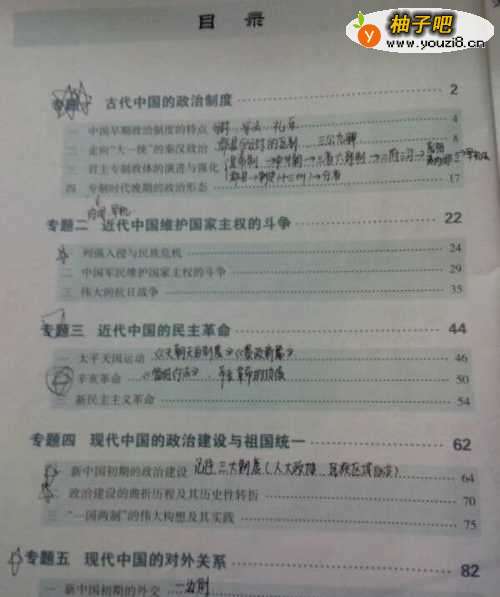 柚子吧
www.youzi8.cn
目 录
古代中国的政治制度 2
一 中国早期政治制度的特点 4
二 走向"大一统"的秦汉政治 三公九卿 8
三 君主专制政体的演进与强化
四 专制时代晚期的政治形态 17
专题二 近代中国维护国家主权的斗争 22
一 列强入侵与民族危机 24
二 中国军民维护国家主权的斗争 29
三 伟大的抗日战争 35
专题三 近代中国的民主革命 44
一 太平天国运动 《天朝田亩制度》《资政新篇》 46
二 辛亥革命 《临时约法》 50
三 新民主主义革命 54
专题四 现代中国的政治建设与祖国统一 62
一 新中国初期的政治建设 三大制度 64
二 政治建设的曲折历程及其历史性转折 70
三 "一国两制"的伟大构想及其实践 75
专题五 现代中国的对外关系 82
一 新中国初期的外交 一边倒